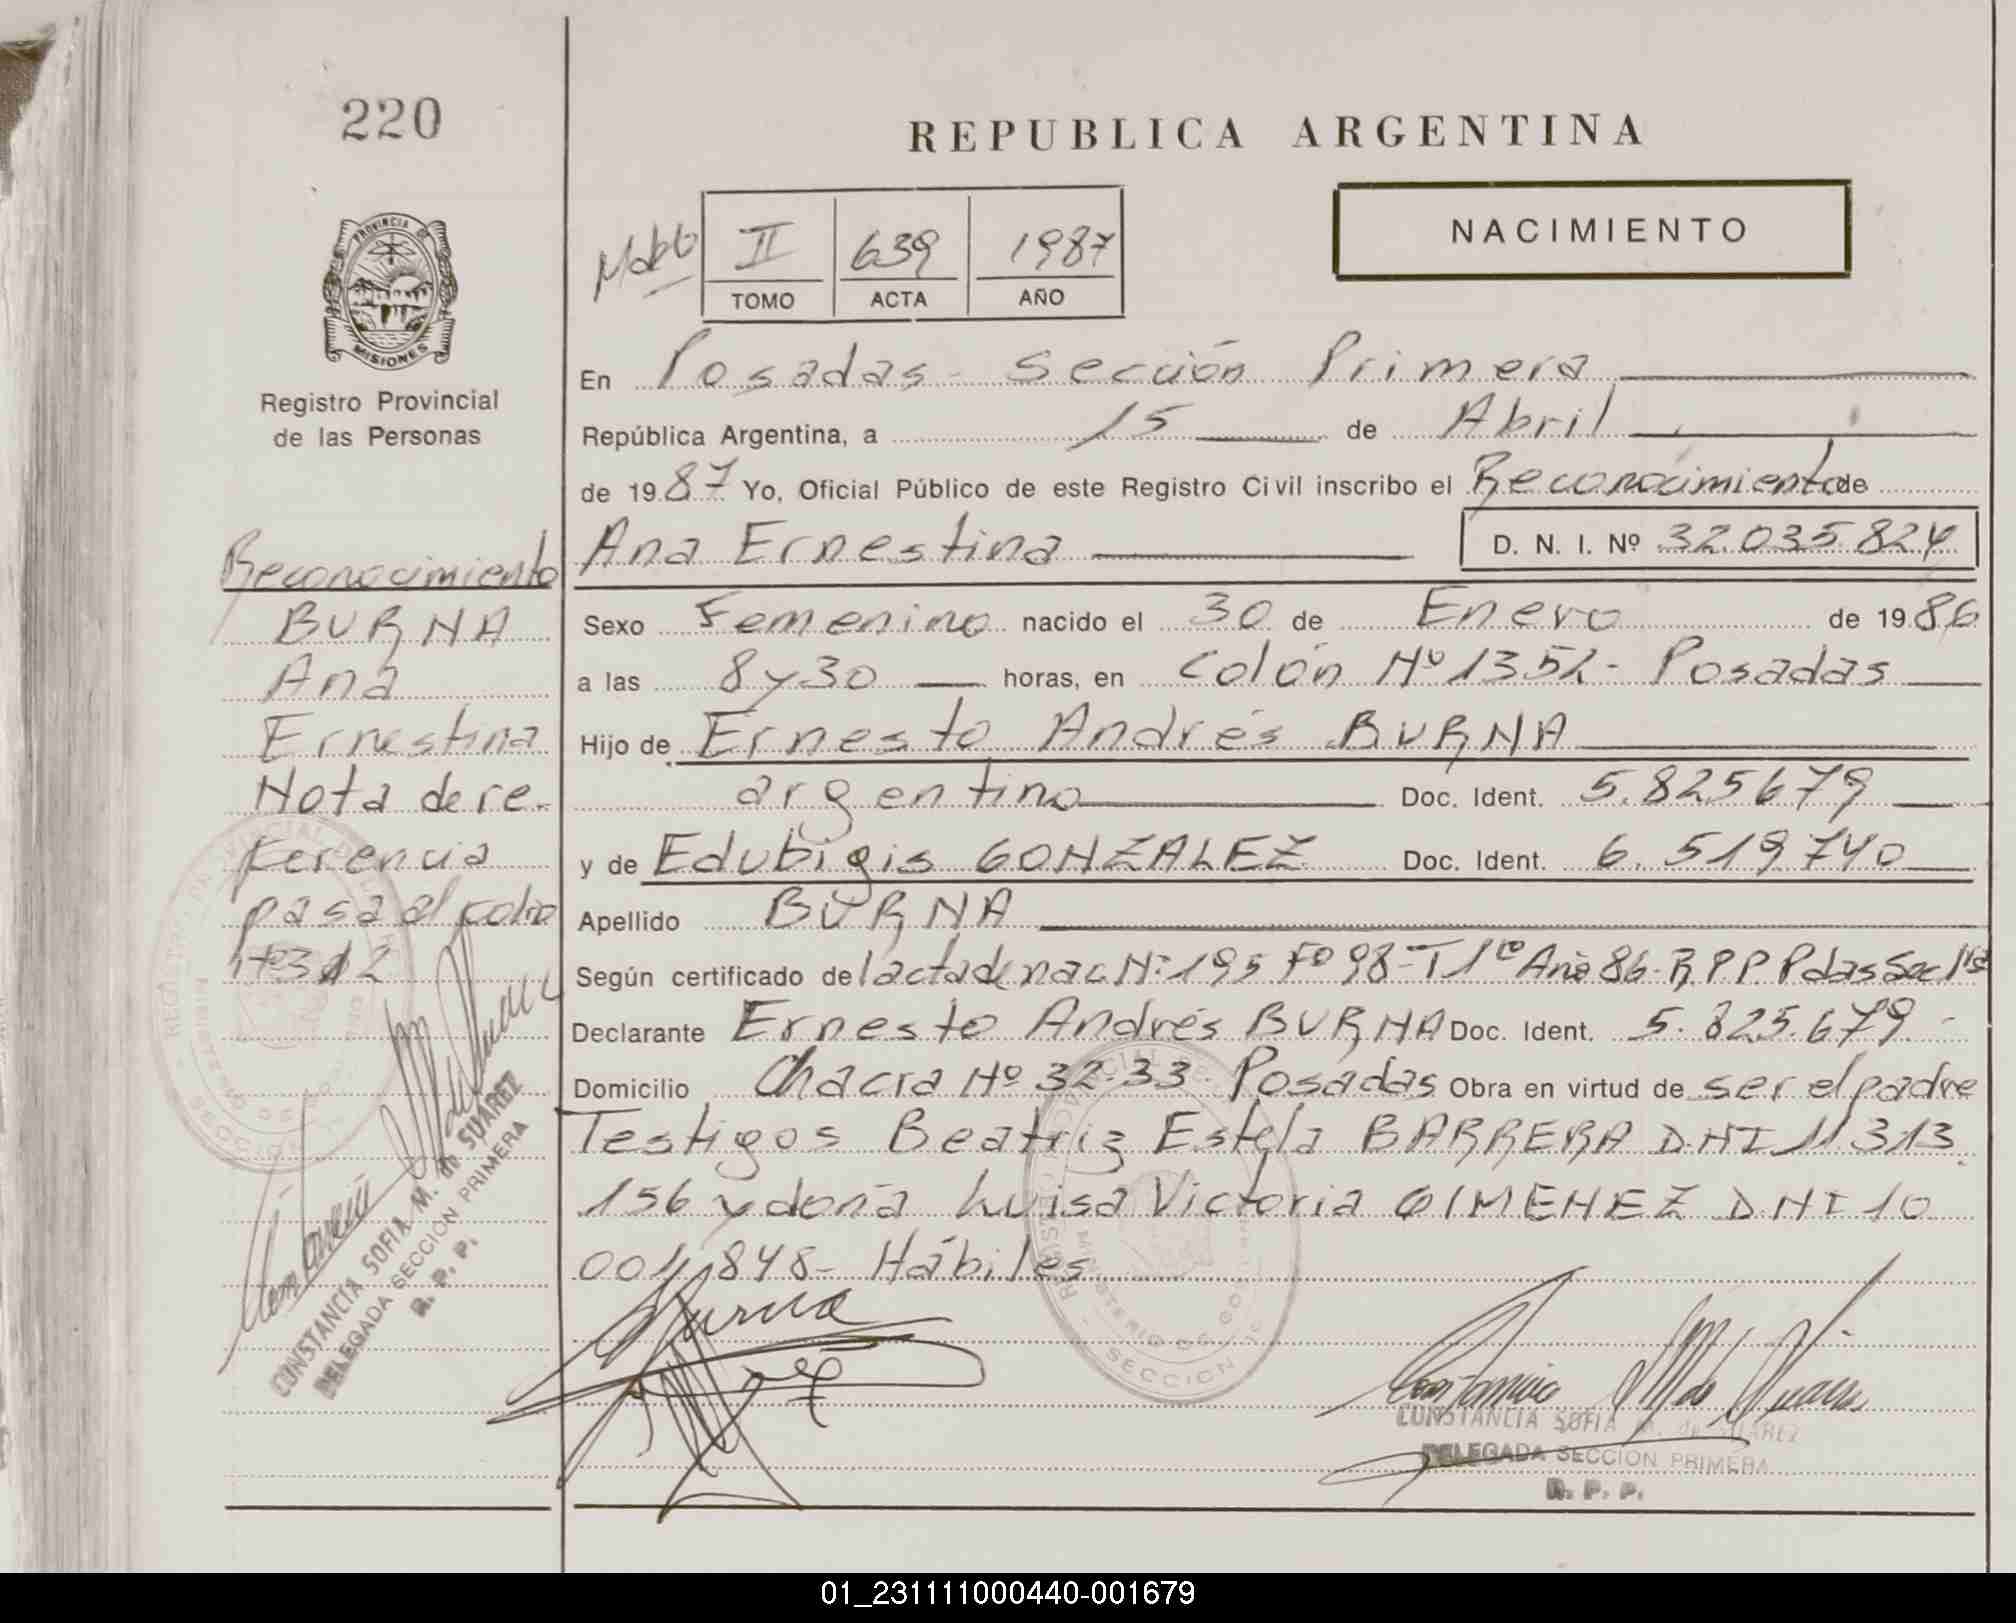 220
PROVINCIA DE
MISIONES
Registro Provincial
de las Personas
Reconocimiento
BURNA
Ana
Ernestina
Nota de re-
ferencia
pasa al folio
Nº 312
CONSTANCIA SOFIA M. de SUAREZ
DELEGADA SECCION PRIMERA
R. P. P.
REPUBLICA ARGENTINA
NACIMIENTO
II 639 1987
TOMO ACTA AÑO
En Posadas - Sección Primera
República Argentina, a 15 de Abril
de 1987 Yo, Oficial Público de este Registro Civil inscribo el Reconocimiento de
Ana Ernestina D. N. I. Nº 32.035.824
Sexo Femenino nacido el 30 de Enero de 1986
a las 8 y 30 horas, en Colón Nº 1352 - Posadas
Hijo de Ernesto Andrés BURNA
argentino Doc. Ident. 5.825679
y de Edubigis GONZALEZ Doc. Ident. 6.519.740
Apellido BURNA
Según certificado de l acta de nac Nº 195 Fº 98 - T 1º Año 86 - R.P.P. Pdas Sec 1ra
Declarante Ernesto Andrés BURNA Doc. Ident. 5.825.679 -
Domicilio Chacra Nº 32-33 - Posadas Obra en virtud de ser el padre
Testigos Beatriz Estela BARRERA DNI 11 313.
156 y doña Luisa Victoria GIMENEZ DNI 10
001.848 - Hábiles
Burna
CONSTANCIA SOFIA M. de SUAREZ
DELEGADA SECCION PRIMERA
R. P. P.
01_231111000440-001679